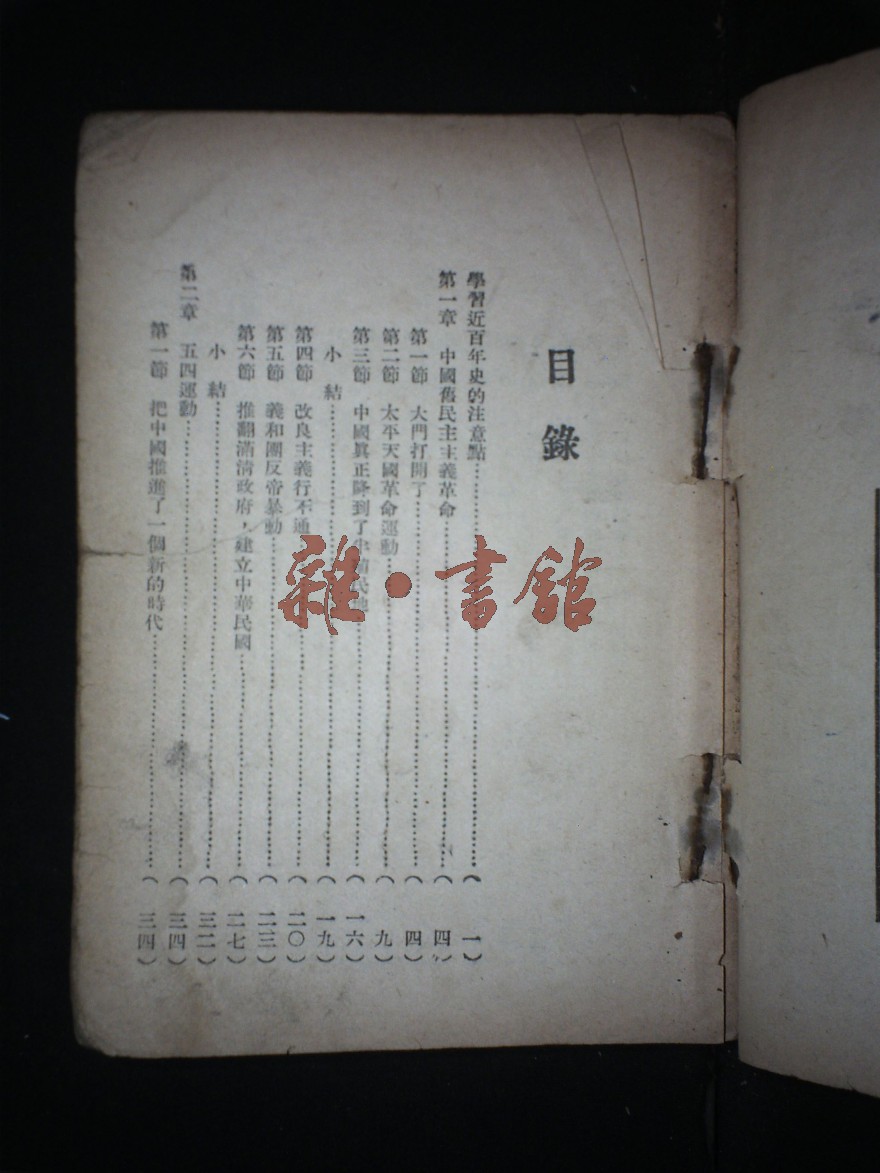 目錄
學習近百年史的注意點……（一）
第一章 中國舊民主主義革命……（四）
第一節 大門打開了……（四）
第二節 太平天國革命運動……（九）
第三節 中國眞正降到了半殖民地……（一六）
小結……（一九）
第四節 改良主義行不通……（二〇）
第五節 義和團反帝暴動……（二三）
第六節 推翻滿清政府，建立中華民國……（二七）
小結……（三二）
第二章 五四運動……（三四）
第一節 把中國推進了一個新的時代……（三四）
雜·書館